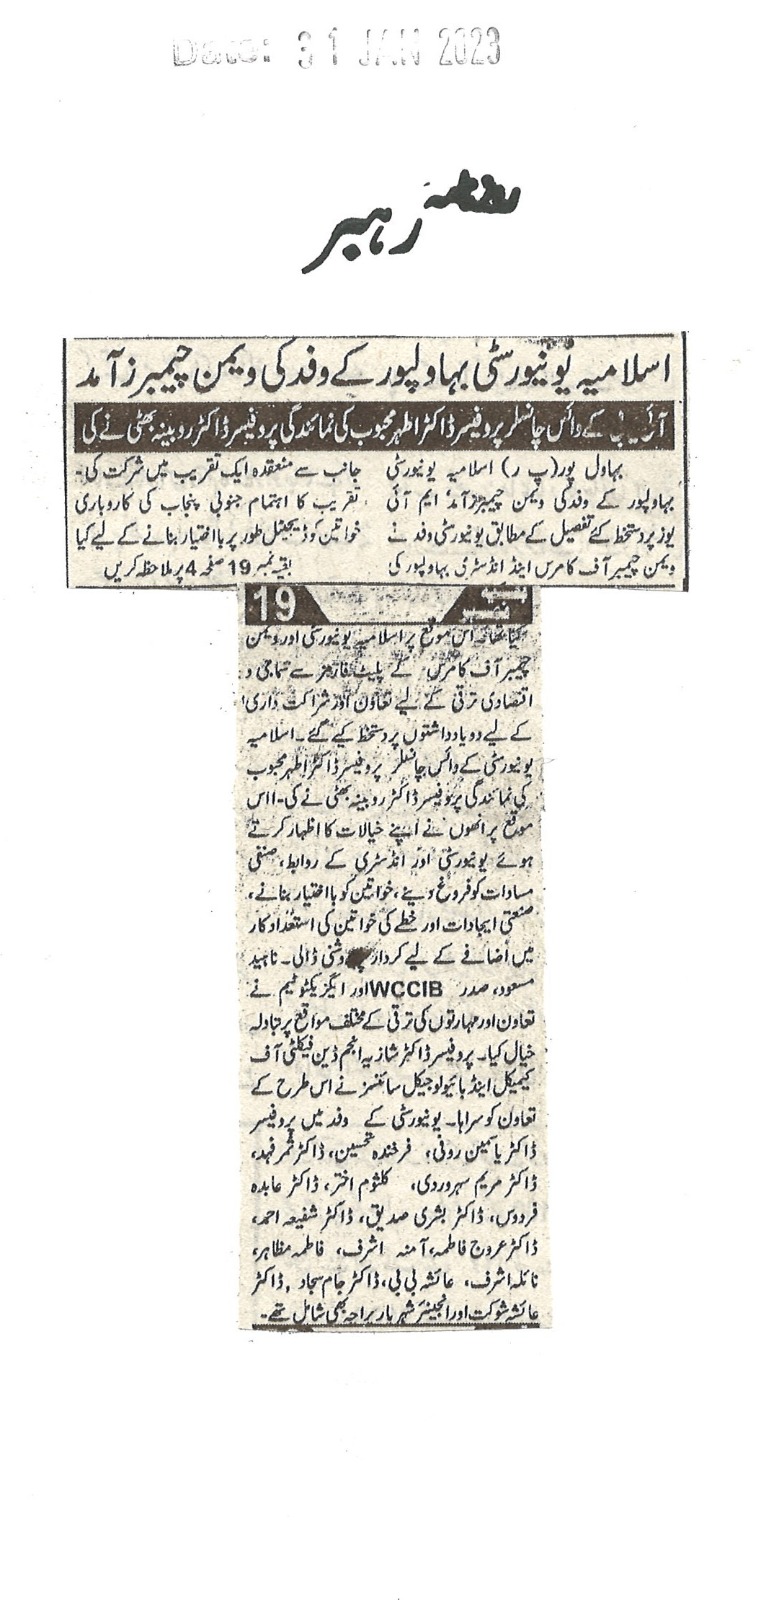 Date: 31 JAN 2023
روزنامہ رہبر
اسلامیہ یونیورسٹی بہاولپور کے وفد کی ویمن چیمبرز آمد
آئی یو بی کے وائس چانسلر پروفیسر ڈاکٹر اطہر محبوب کی نمائندگی پروفیسر ڈاکٹر روبینہ بھٹی نے کی
بہاول پور(پ ر) اسلامیہ یونیورسٹی
بہاولپور کے وفد کی ویمن چیمبرز آمد ایم آئی
یوز پر دستخط کئے تفصیل کے مطابق یونیورسٹی وفد نے
ویمن چیمبر آف کامرس اینڈ انڈسٹری بہاولپور کی
جانب سے منعقدہ ایک تقریب میں شرکت کی۔
تقریب کا اہتمام جنوبی پنجاب کی کاروباری
خواتین کو ڈیجیٹل طور پر بااختیار بنانے کے لیے کیا
بقیہ نمبر 19 صفحہ 4 پر ملاحظہ کریں
بقیہ نمبر 19
گیا تھا۔ اس موقع پر اسلامیہ یونیورسٹی اور ویمن
چیمبر آف کامرس کے پلیٹ فارمز سے سماجی و
اقتصادی ترقی کے لیے تعاون اور شراکت داری
کے لیے دو یادداشتوں پر دستخط کیے گئے۔ اسلامیہ
یونیورسٹی کے وائس چانسلر پروفیسر ڈاکٹر اطہر محبوب
کی نمائندگی پروفیسر ڈاکٹر روبینہ بھٹی نے کی۔ ااس
موقع پر انھوں نے اپنے خیالات کا اظہار کرتے
ہوئے یونیورسٹی اور انڈسٹری کے روابط، صنفی
مساوات کو فروغ دینے، خواتین کو بااختیار بنانے،
صنعتی ایجادات اور خطے کی خواتین کی استعداد کار
میں اضافے کے لیے کردار پر روشنی ڈالی۔ ناہید
مسعود، صدر WCCIB اور ایگزیکٹو ٹیم نے
تعاون اور مہارتوں کی ترقی کے مختلف مواقع پر تبادلہ
خیال کیا۔ پروفیسر ڈاکٹر شازیہ انجم ڈین فیکلٹی آف
کیمیکل اینڈ بائیولوجیکل سائنسز نے اس طرح کے
تعاون کو سراہا۔ یونیورسٹی کے وفد میں پروفیسر
ڈاکٹر یاسمین روفی، فرخندہ تحسین، ڈاکٹر ثمر فہد،
ڈاکٹر مریم سہروردی، کلثوم اختر، ڈاکٹر عابدہ
فردوس، ڈاکٹر بشری صدیق، ڈاکٹر شفیعہ احمد،
ڈاکٹر عروج فاطمہ، آمنہ اشرف، فاطمہ مظاہر،
نائلہ اشرف، عائشہ بی بی، ڈاکٹر جام سجاد، ڈاکٹر
عائشہ شوکت اور انجینئر شہریار براجہ بھی شامل تھے۔